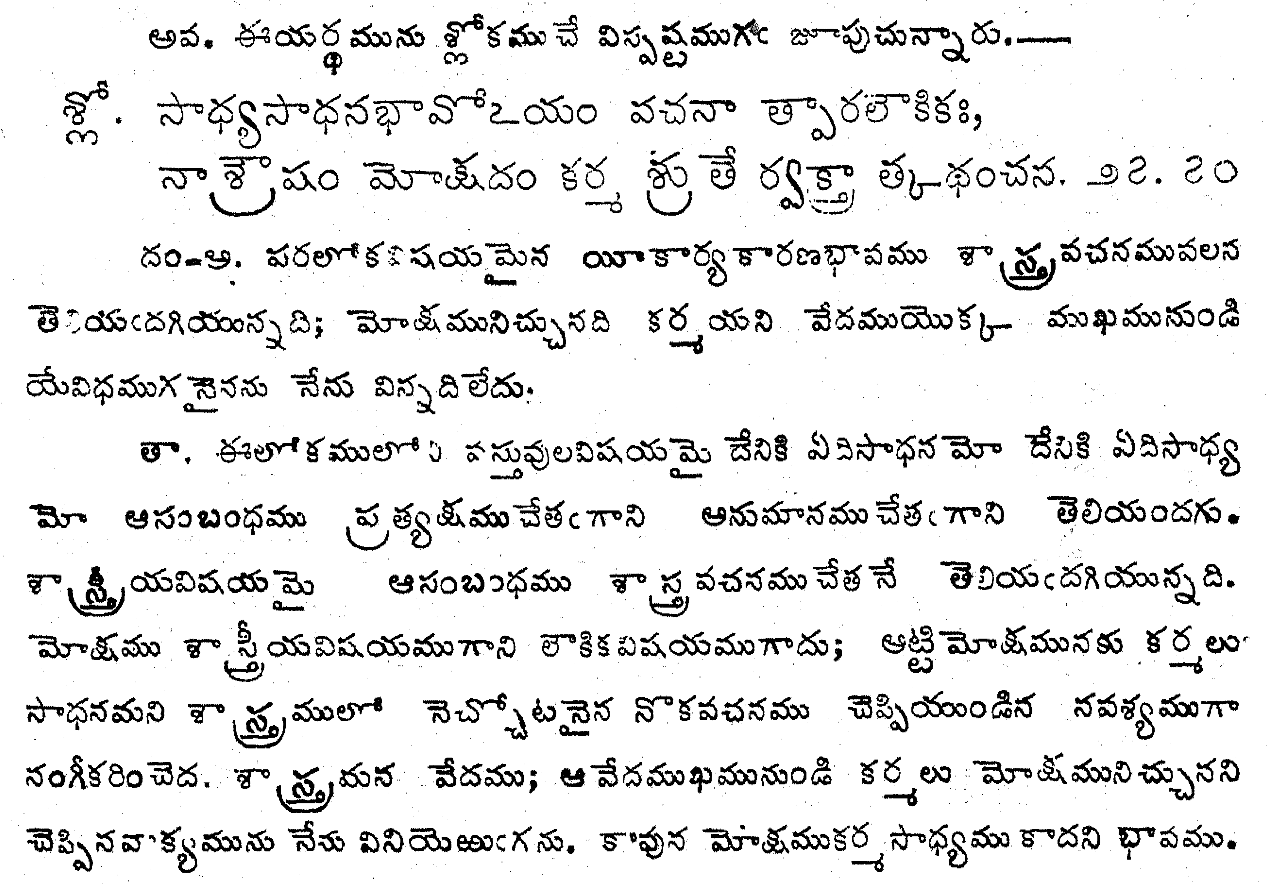 అవ. ఈయర్థమును శ్లోకముచే విస్పష్టముగఁ జూపుచున్నారు.—
శ్లో. సాధ్యసాధనభావోఽయం వచనా త్పారలౌకికః,
నాశ్రౌషం మోక్షదం కర్మ శ్రుతే ర్వక్త్రా త్కథంచన. ౨౭. ౨౦
దం-అ. పరలోకవిషయమైన యీకార్యకారణభావము శాస్త్రవచనమువలన
తెలియఁదగియున్నది; మోక్షమునిచ్చునది కర్మయని వేదముయొక్క ముఖమునుండి
యేవిధముగనైనను నేను విన్నదిలేదు.
తా. ఈలోకములోని వస్తువులవిషయమై దేనికి ఏదిసాధనమో దేనికి ఏదిసాధ్య
మో ఆసంబంధము ప్రత్యక్షముచేతఁగాని అనుమానముచేతఁగాని తెలియందగు.
శాస్త్రీయవిషయమై ఆసంబంధము శాస్త్రవచనముచేతనే తెలియఁదగియున్నది.
మోక్షము శాస్త్రీయవిషయముగాని లౌకికవిషయముగాదు; అట్టిమోక్షమునకు కర్మలు
సాధనమని శాస్త్రములో నెచ్చోటనైన నొకవచనము చెప్పియుండిన నవశ్యముగా
నంగీకరించెద. శాస్త్రమన వేదము; ఆవేదముఖమునుండి కర్మలు మోక్షమునిచ్చునని
చెప్పినవాక్యమును నేను వినియెఱుఁగను. కావున మోక్షముకర్మసాధ్యము కాదని భావము.